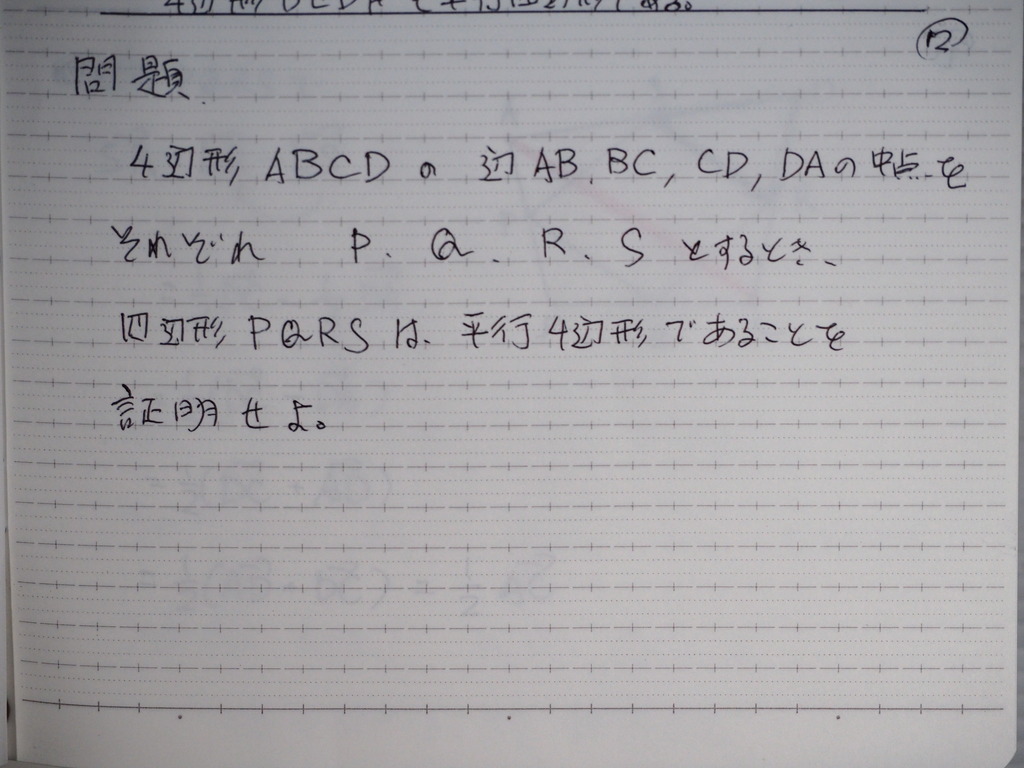 ⑫
問題
4辺形 ABCD の 辺 AB, BC, CD, DAの中点を
それぞれ P. Q. R. S とするとき、
四辺形 PQRS は、平行4辺形であることを
証明せよ。